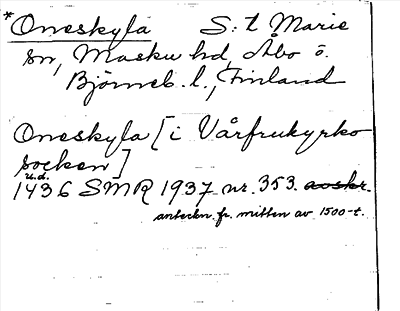 *Oneskylä S:t Marie
sn, Masku hd, Åbo o.
Björneb. l., Finland
Oneskyla [i Vårfrukyrko
socken]
u.d.
1436 SMR 1937 nr. 353. avskr.
anteckn. fr. mitten av 1500-t.